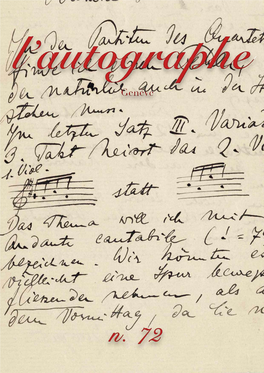 In der Partitur des Quartetts
l'autographe
Genève
der natürlich auch in der H
stehen muss.
Im letzten Satz III. Variat
3. Takt heisst das 2. V
1. Viol.
statt
Das Thema will ich mit
andante cantabile (♩=7
bezeichnen. Wir könnten es
vielleicht eine Spur beweg
fliessender nehmen, als a
dem Vormittag, da Sie n
n. 72